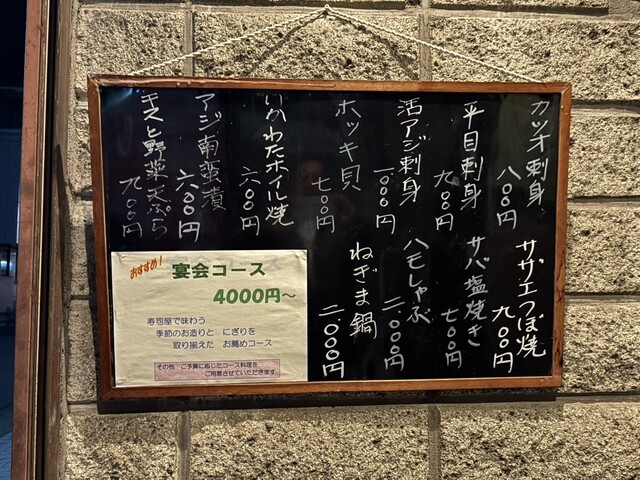 カツオ刺身
八〇〇円
平目刺身
九〇〇円
活アジ刺身
一、〇〇〇円
ホッキ貝
七〇〇円
いかわたホイル焼
六〇〇円
アジ南蛮漬
六〇〇円
キスと野菜天ぷら
九〇〇円
サザエつぼ焼
九〇〇円
サバ塩焼き
七〇〇円
ハモしゃぶ
二、〇〇〇円
ねぎま鍋
二、〇〇〇円
おすすめ!
宴会コース
4000円～
寿司屋で味わう
季節のお造りと にぎりを
取り揃えた お薦めコース
その他 ご予算に応じたコース料理を
ご用意させていただきます